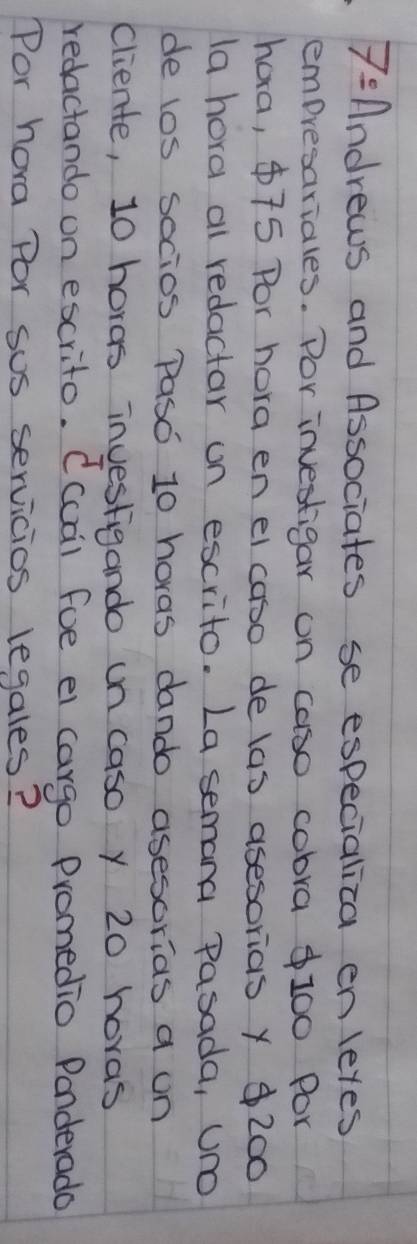 7: Andrews and Associates se especializa en leyes
empresariales. Por investigar un caso cobra $100 Por
hora, $75 Por hora en el caso de las asesorias y $200
la hora al redactar un escrito. La semana Pasada, uno
de los socios Pasó 10 horas dando asesorías a un
cliente, 10 horas investigando un caso y 20 horas
redactando un escrito. ¿Cuál fue el cargo Promedio Ponderado
Por hora Por sus servicios legales?